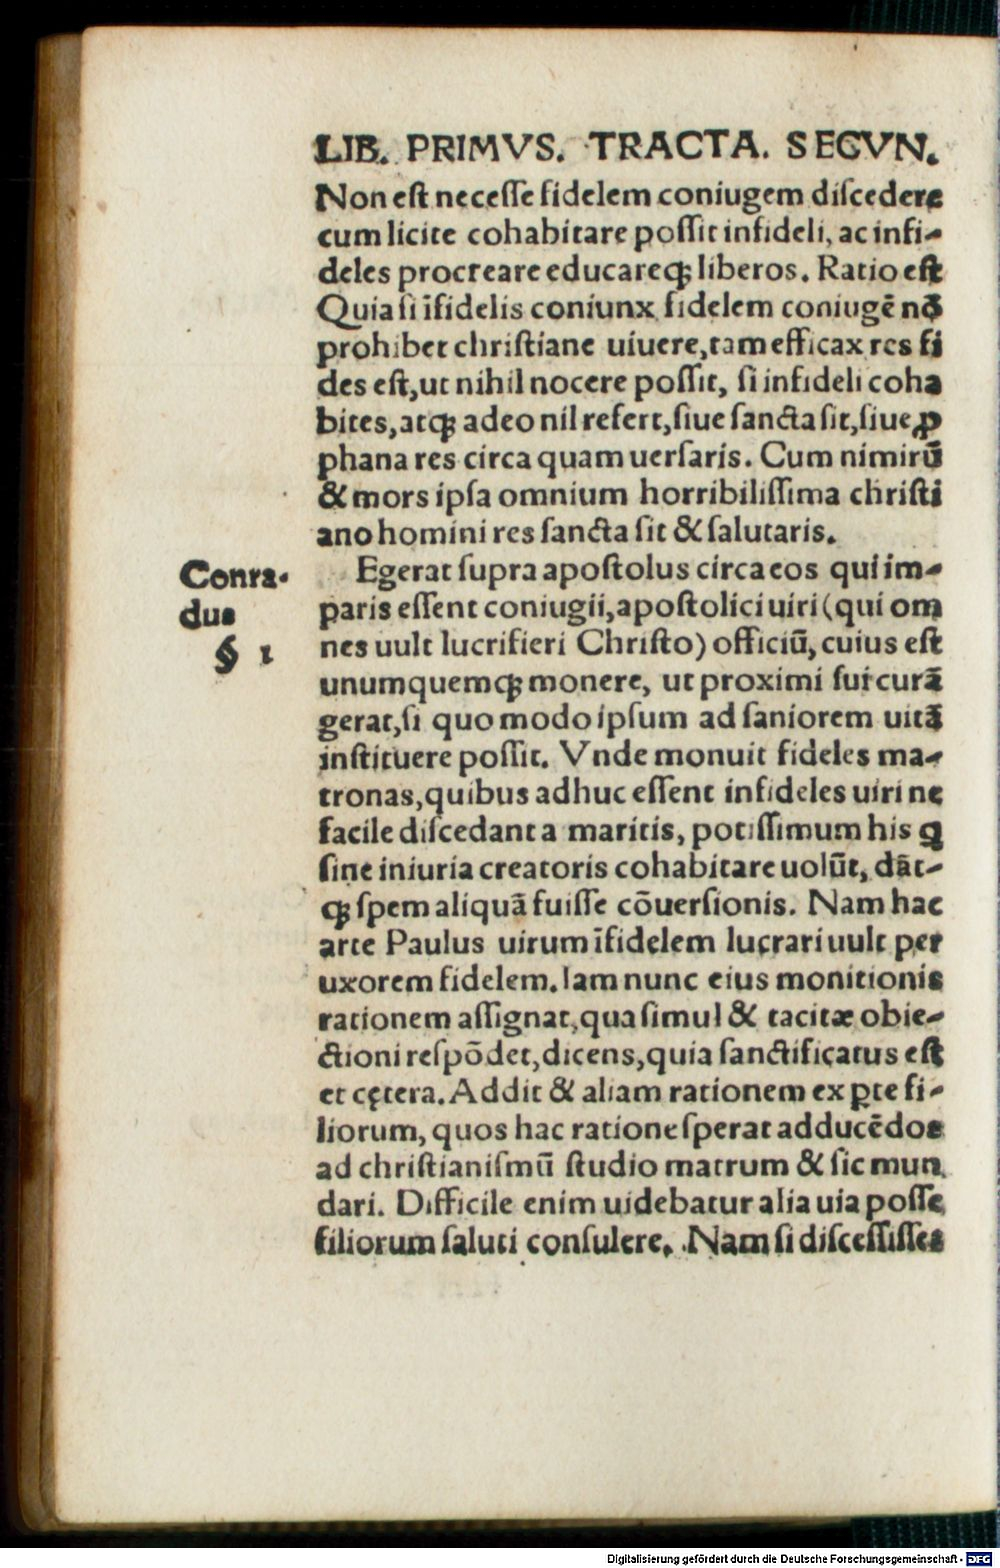 LIB. PRIMVS. TRACTA. SECVN.
Non eſt neceſſe fidelem coniugem diſcedere
cum licite cohabitare poſſit infideli, ac infi-
deles procreare educareq́; liberos. Ratio eſt
Quia ſi ĩfidelis coniunx fidelem coniugẽ nõ
prohibet chriſtiane uiuere, tam efficax res fi
des eſt, ut nihil nocere poſſit, ſi infideli coha
bites, atq; adeo nil refert, ſiue ſancta ſit, ſiue ꝓ
phana res circa quam uerſaris. Cum nimirũ
& mors ipſa omnium horribiliſſima chriſti
ano homini res ſancta ſit & ſalutaris.
Conra-
dus
§ 1
Egerat ſupra apoſtolus circa eos qui im-
paris eſſent coniugii, apoſtolici uiri (qui om
nes uult lucrifieri Chriſto) officiũ, cuius eſt
unumquemq; monere, ut proximi ſui curã
gerat, ſi quo modo ipſum ad ſaniorem uitã
inſtituere poſſit. Vnde monuit fideles ma-
tronas, quibus adhuc eſſent infideles uiri ne
facile diſcedant a maritis, potiſſimum his ꝗ
ſine iniuria creatoris cohabitare uolũt, dãt-
q; ſpem aliquã fuiſſe cõuerſionis. Nam hac
arte Paulus uirum ĩfidelem lucrari uult per
uxorem fidelem. Iam nunc eius monitionis
rationem aſſignat, qua ſimul & tacitæ obie-
ctioni reſpõdet, dicens, quia ſanctificatus eſt
et cętera. Addit & aliam rationem ex ꝑte fi-
liorum, quos hac ratione ſperat adducẽdos
ad chriſtianiſmũ ſtudio matrum & ſic mun
dari. Difficile enim uidebatur alia uia poſſe
filiorum ſaluti conſulere. Nam ſi diſceſſiſſet
Digitalisierung gefördert durch die Deutsche Forschungsgemeinschaft - DFG